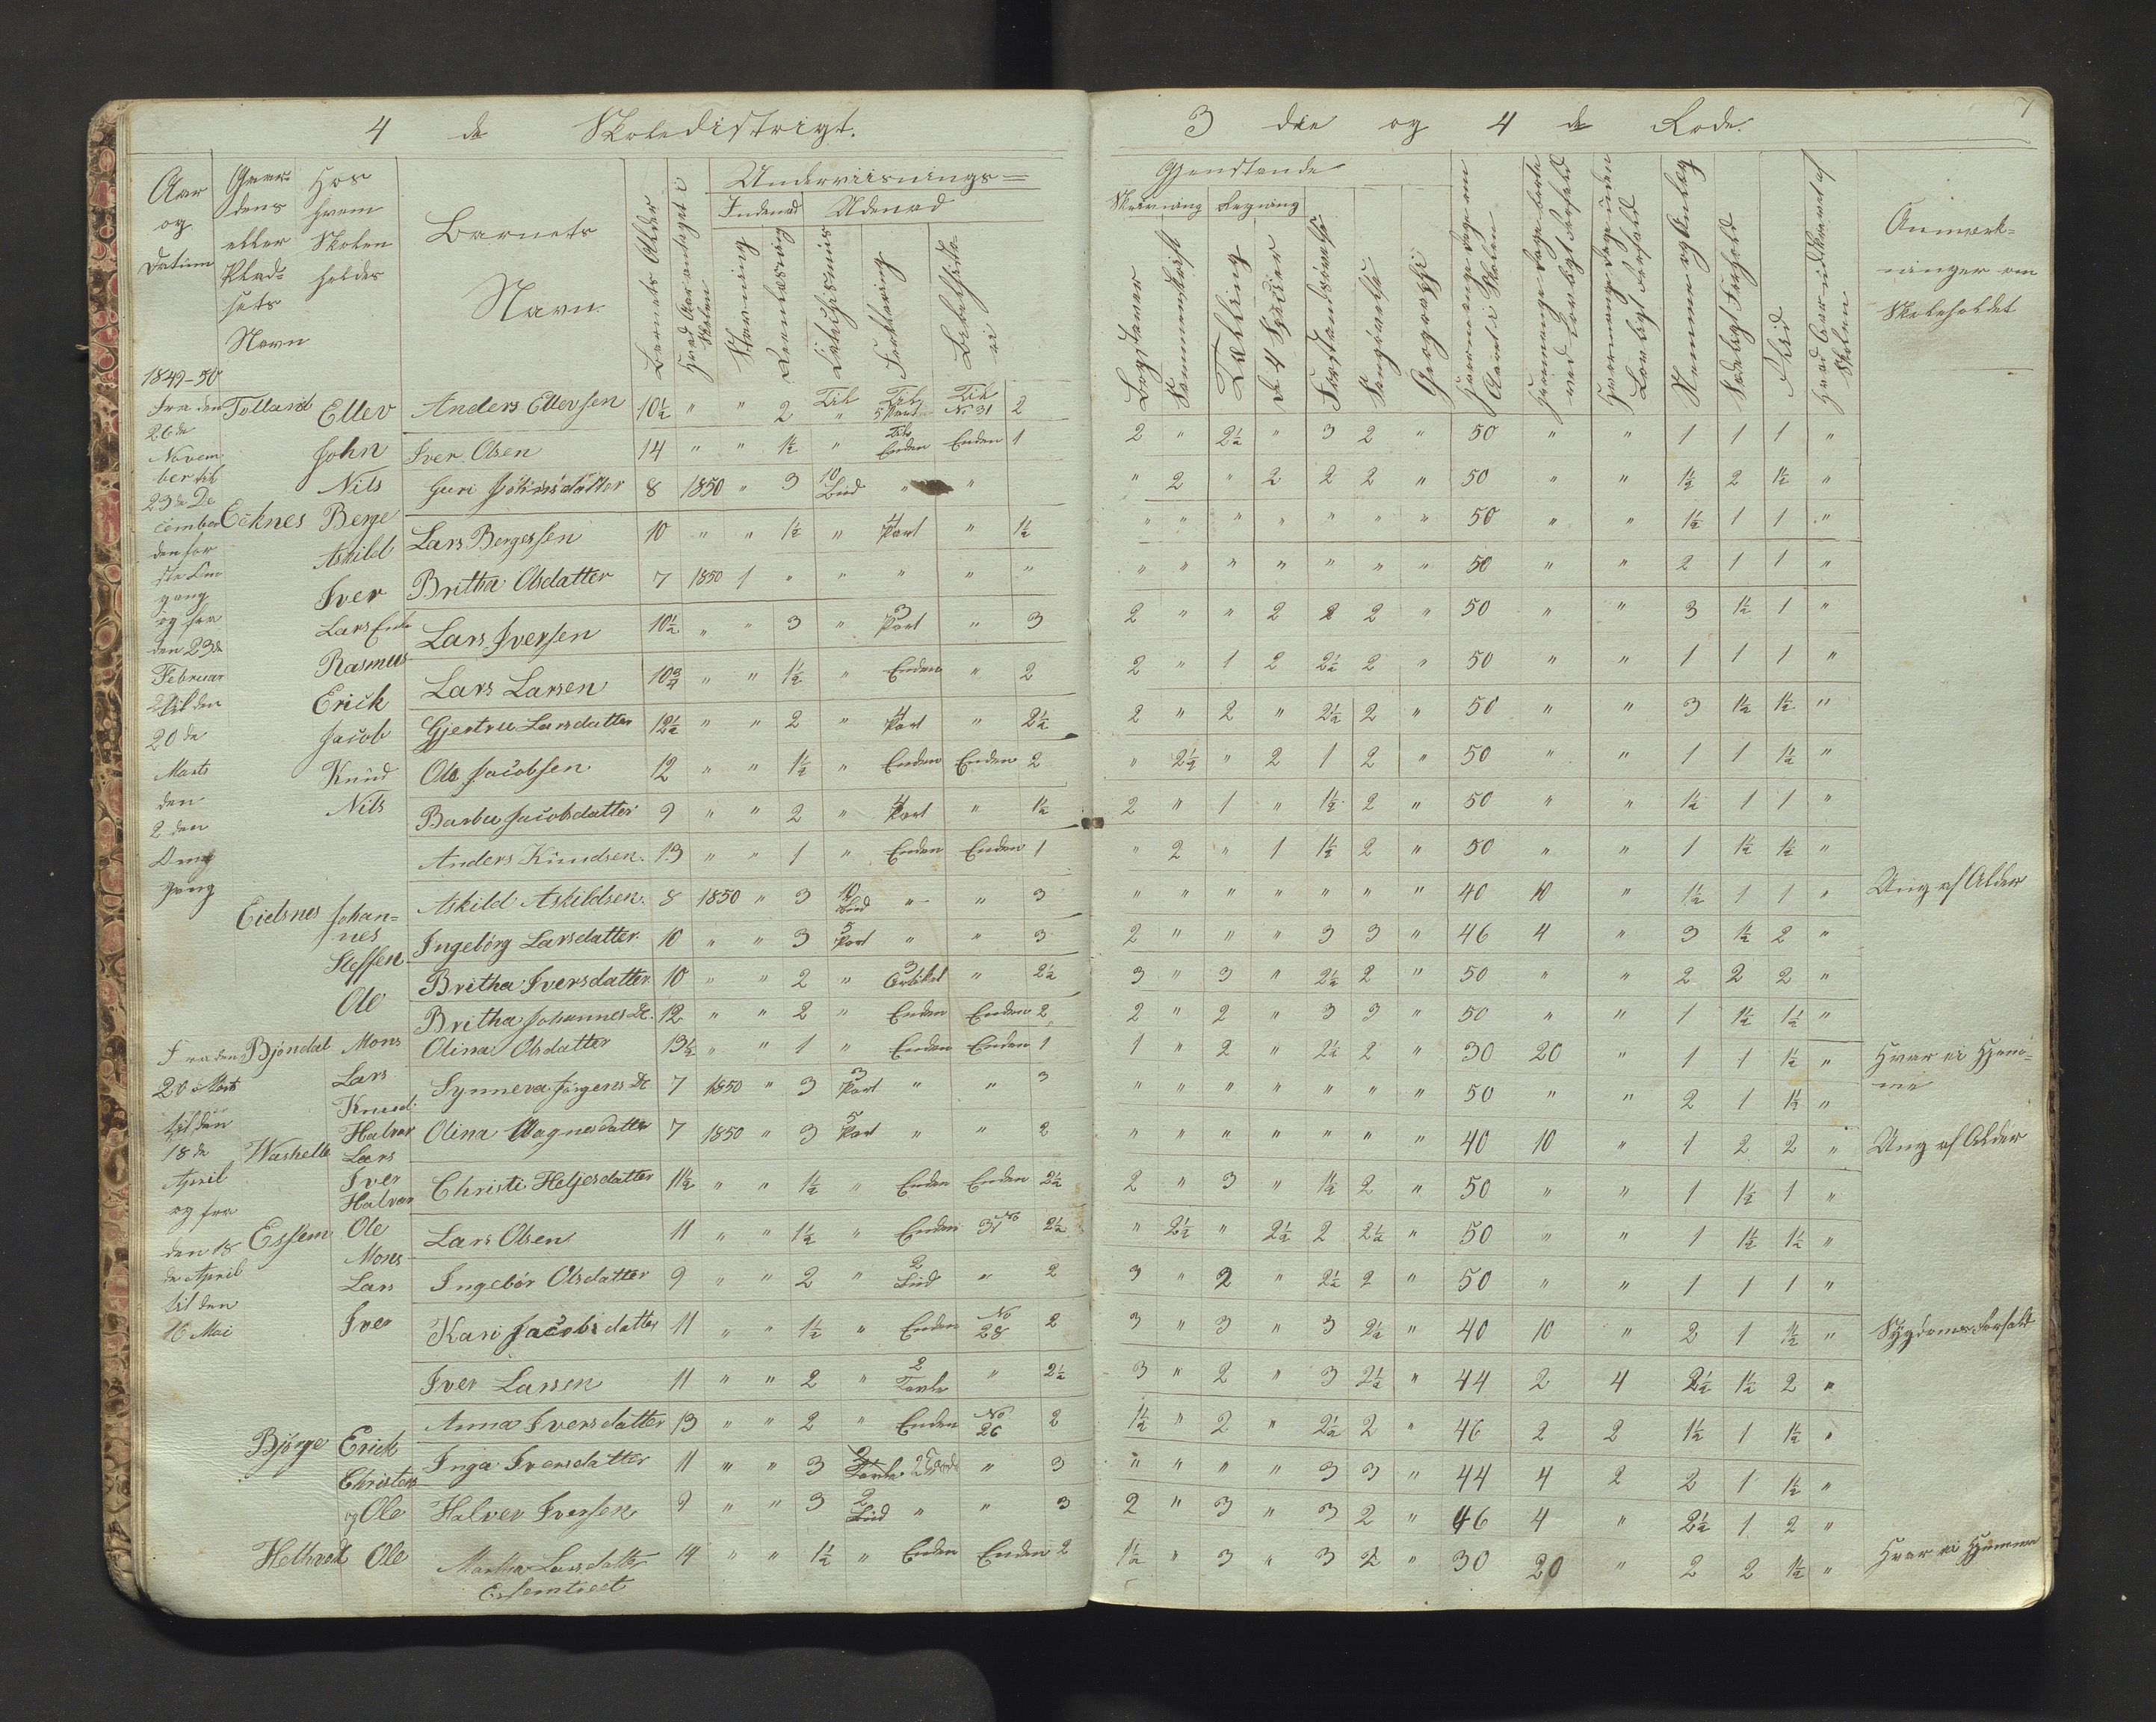 4 de Skoledistrigt.
3 die og 4 de Rode.
7
Aar og Datum
Gaardens eller Pladsets Navn
Hos hvem Skolen holdes
Barnets Navn.
Barnets Alder
Hvad Aar antaget i Skolen
Underviisnings=
Indenad Udenad
Stavning
Reenlæsning
Forklaring
Gjenstande
Skrivning Regning
Bogstaver
Sammenskrift
Tælling
De 4 Spesier
Forstandsøvelse
Sangøvelse
Geografi
Hvormange Dage om Aaret i Skolen
Hvormange Dage borte med Lovligt Forfald
Hvormange Dage uden Lovligt Forfald
Nemme og Anlæg
Sædeligt Forhold
Flid
Hvad Aar udskrevet af Skolen
Anmærkninger om Skoleholdet
1849-50
Fra den 26de November til 23de December den første Omgang og fra den 23de Februar til den 20de Marts den 2den Omgang
Tolland Ellev
John
Nils
Ecknes Berge
Askild
Iver
Lars Enke
Rasmus
Erick
Jacob
Knud
Nils
Eidsnes Johannes
Steffen
Ole
Fra den 20 Marts til den 18de April og fra den 18de April til den 16 Mai
Bjøndal Mons
Lars
Knud
Halvor
Washelle Lars
Iver
Halvor
Essem Ole
Mons
Lars
Iver
Bjørge Erick
Christen
og Ole
Helhvet Ole
Anders Ellevsen 10½ " " 2 Til " Til 5 Part Til No 31 2 2 " 2½ " 3 2 " 50 " " 1 1 1 "
Iver Olsen 14 " " 1½ " Til Enden Enden 1 " 2 " 2 2 2 " 50 " " 1½ 2 1½ "
Guri Johnsdatter 8 1850 " 3 10 Bud " " " " " " " " " 50 " " 1½ 1 1 "
Lars Bergessen 10 " " 1½ " 4 Part " 1½ " " " " " " " 50 " " 2 1 1 "
Britha Olsdatter 7 1850 1 " " " " " 2 " " 2 2 2 " 50 " " 3 1½ 1 "
Lars Iversen 10½ " " 3 " 3 Part " 3 2 " 1 2 2½ 2 " 50 " " 1 1 1 "
Lars Larsen 10¾ " " 1½ " Enden " 2 2 " 2 " 2½ 2 " 50 " " 3 1½ 1½ "
Gjertru Larsdatter 12½ " " 2 " 4 Part " 2½ " 2½ " 2 1 2 " 50 " " 1 1 1½ "
Ole Jacobsen 12 " " 1½ " Enden Enden 2 2 " 1 " 1½ 2 " 50 " " 1½ 1 1 "
Barbu Jacobsdatter 9 " " 2 " 4 Part " 1½ " 2 " 1 1½ 2 " 50 " " 1 1½ 1½ "
Anders Knudsen 13 " " 1 " Enden Enden 1 " " " " " " " 40 10 " 1½ 1 1 " Ung af Alder
Askild Askildsen 8 1850 " 3 10 Bud " " 3 2 " " " 3 3 " 46 4 " 3 1½ 2 "
Ingebörg Larsdatter 10 " " 3 5 Part " " 3 3 " 3 " 2½ 2 " 50 " " 2 2 2 "
Britha Iversdatter 10 " " 2 " 3 Artikel " 2½ 2 " 2 " 3 3 " 50 " " 1 1½ 1½ "
Britha Johannes Dt. 12 " " 2 " Enden Enden 2 1 " 2 " 2½ 2 " 30 20 " 1 1 1½ " Hvar ei Hjemme
Olina Olsdatter 13½ " " 1 " Enden Enden 1 " " " " " " " 50 " " 2 1 1½ "
Synneva Jörgens Dt 7 1850 " 3 3 Part " " 3 " " " " " " " 40 10 " 1 2 2 " Ung af Alder
Olina Magnesdatter 7 1850 " 3 5 Part " " 2 2 " 3 " 1½ 2 " 50 " " 1 1½ 1 "
Christi Heljesdatter 11½ " " 1½ " Enden Enden 2½ " 2½ " 2½ 2 2½ " 50 " " 1 1½ 1½ "
Lars Olsen 11 " " 1½ " Enden No 31 2½ 3 " 2 " 2½ 2 " 50 " " 1 1 1 "
Ingebör Olsdatter 9 " " 2 " 2 Bud " 2 3 " 3 " 3 2½ " 40 10 " 2 1 1½ " Sygdoms Forfald
Kari Jacobsdatter 11 " " 1½ " Enden No 28 2 3 " 2 " 3 2½ " 44 2 4 2½ 1½ 2 "
Iver Larsen 11 " " 2 " 2 Tavle " 2½ 1½ " 2 " 2½ 2 " 46 2 2 1½ 1 1½ "
Anna Iversdatter 13 " " 2 " Enden No 26 2 " " " " 3 3 " 44 4 2 2 1 1½ "
Inga Iversdatter 11 " " 3 2 Tavle " 3 2 " 3 " 3 2 " 46 4 " 2½ 1 2 "
Halver Iversen 9 " " 3 2 Bud " " 3 1½ " 3 " 3 2 " 30 20 " 2 2 1½ " Hvar ei Hjemme
Martha Larsdatter 14 " " 1½ " Enden Enden 2